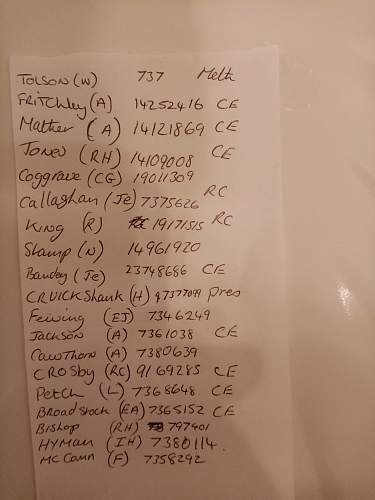 TOLSON (W) 737 Meth
FRITCHLEY (A) 14252416 CE
Mather (A) 14121869 CE
Jones (RH) 14109008 CE
Coggrave (CG) 19011309
Callaghan (Je) 7375626 RC
KING (R) 19171515 RC
Stamp (N) 14961920
(Je) 23748686 CE
CRUICKShank (H) 7377099 Pres
(EJ) 7346249
JACKSON (A) 7361038 CE
CAWTHORN (A) 7380639
CROSBY (RC) 9169285 CE
Petch (L) 7368648 CE
BROADSTOCK (EA) 7365152 CE
BISHOP (RH) 797401
HYMAN (IH) 7380114
Mc Cann (F) 7358292